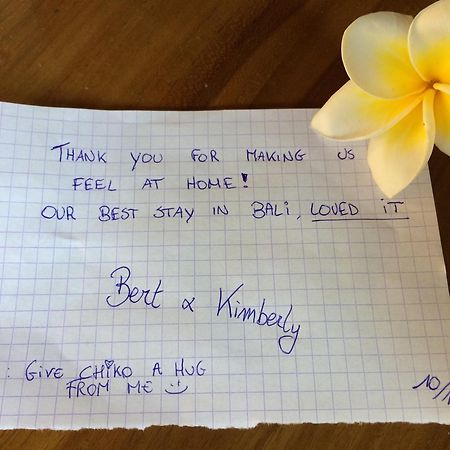 THANK YOU FOR MAKING US
FEEL AT HOME!
OUR BEST STAY IN BALI, LOVED IT
Bert & Kimberly
: GIVE CHIKO A HUG
FROM ME :)
10/